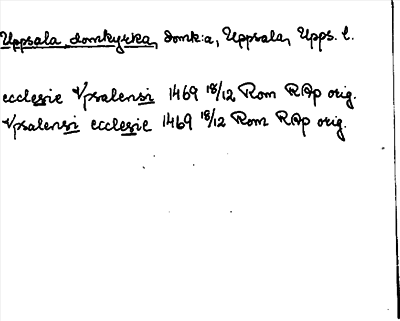 Uppsala domkyrka, domk:a, Uppsala, Upps. l.
ecclesie Vpsalensi 1469 18/12 Rom RAp orig.
Vpsalensi ecclesie 1469 18/12 Rom RAp orig.